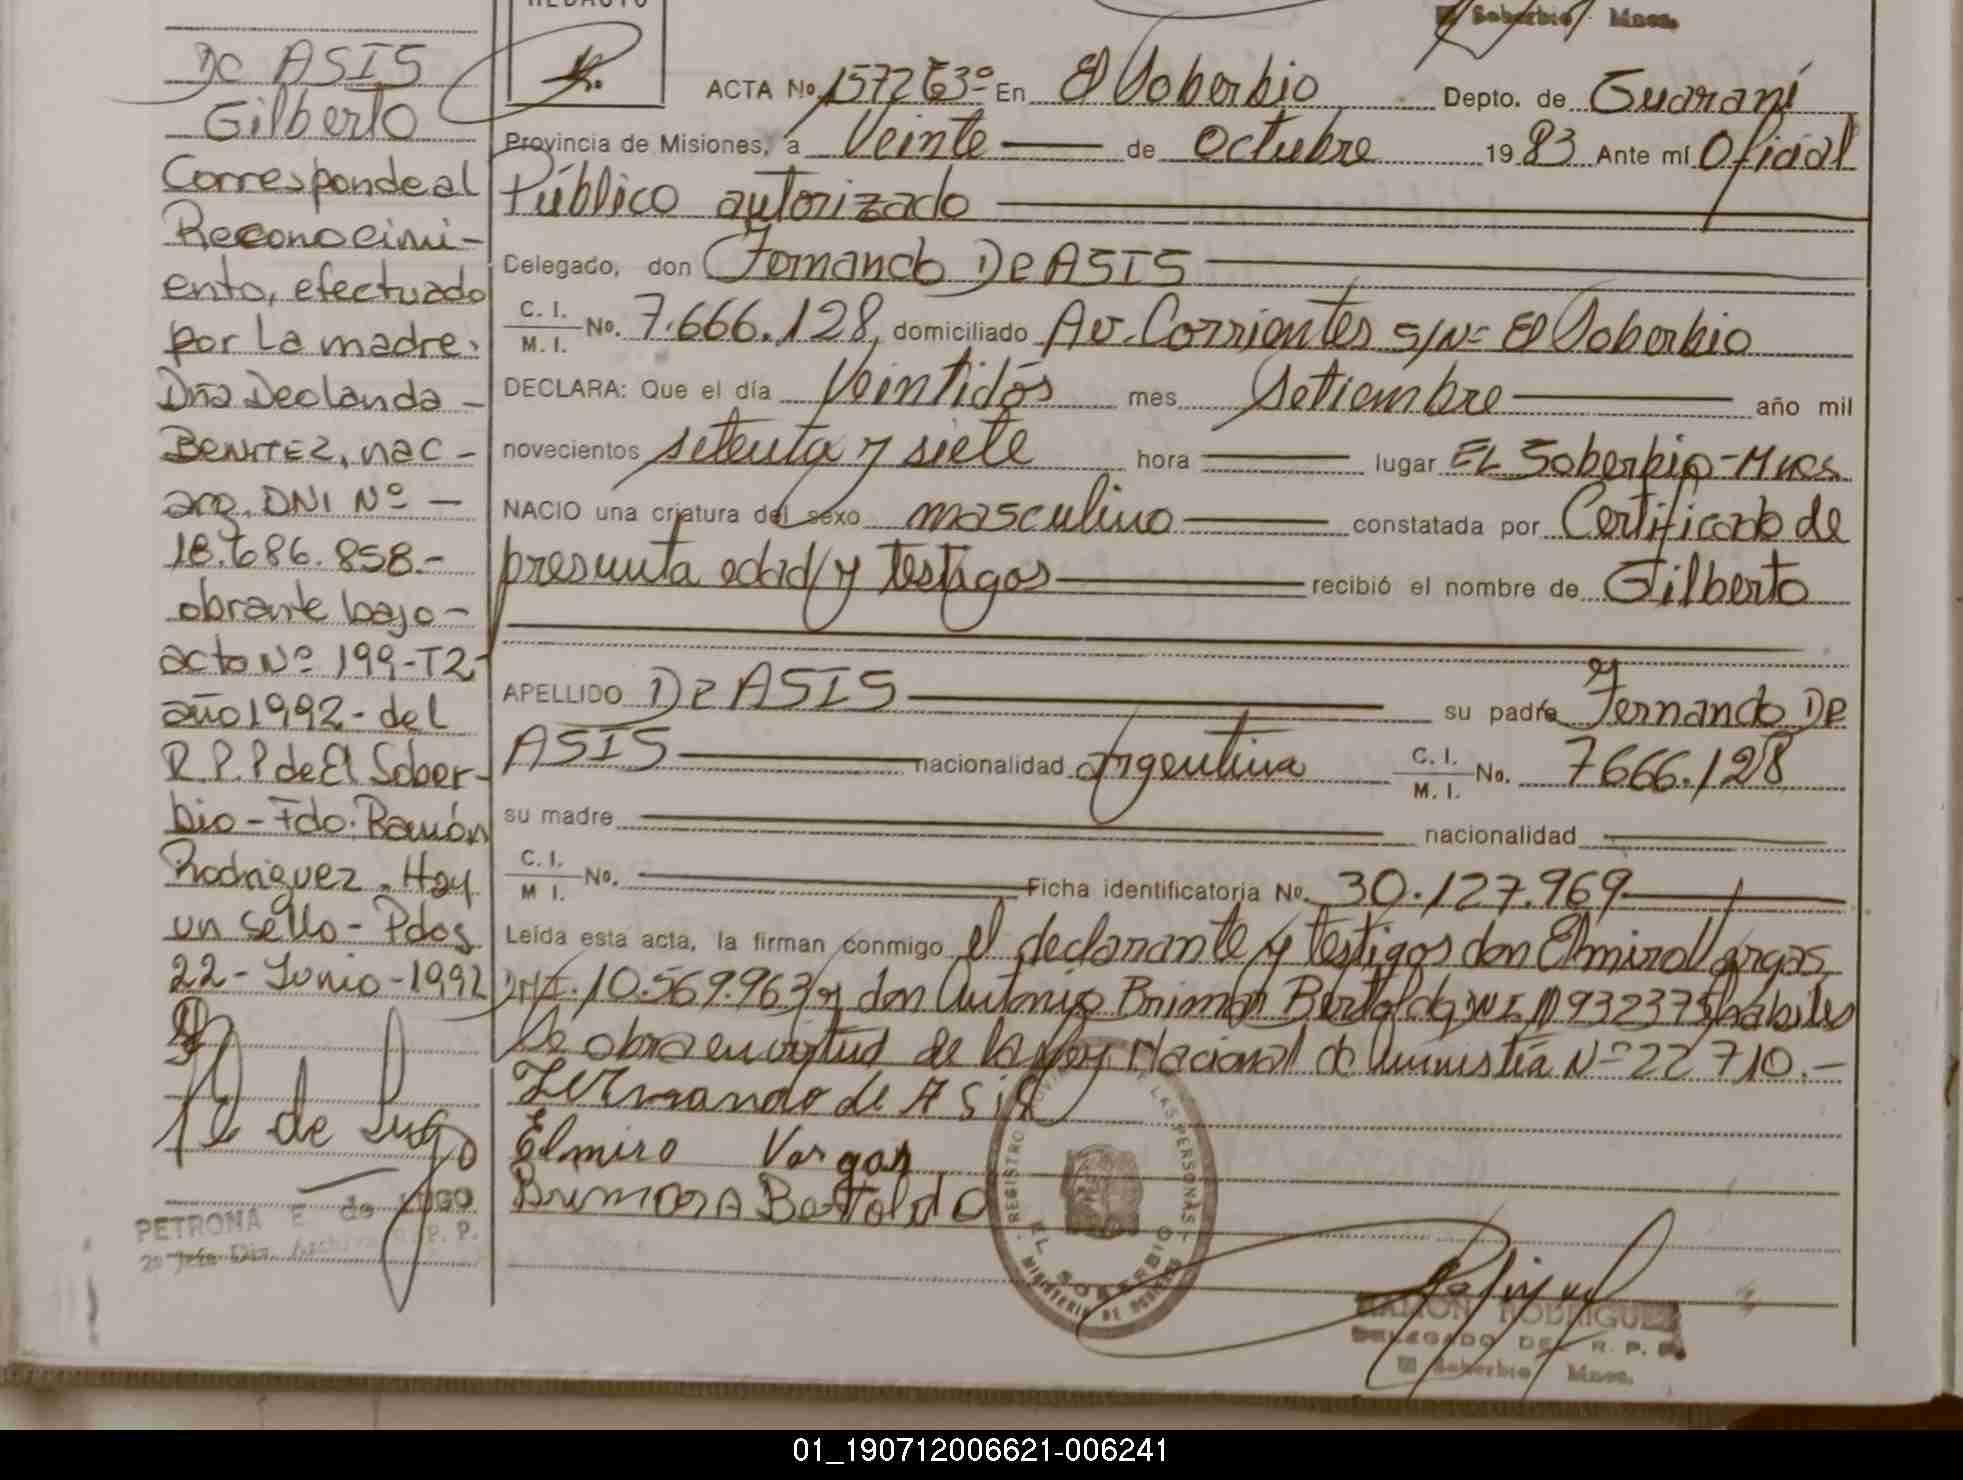 REDACTO
El Soberbio Mnes.
De ASIS
Gilberto
Corresponde al
Reconocimi-
ento, efectuado
por La madre.
Dña Deolanda -
BENITEZ, nac -
arg. DNI Nº -
18.686.858.-
obrante bajo -
acta Nº 199-T2-
año 1992- del
R.P.P de El Sober-
bio - Fdo. Ramón
Rodriguez. Hay
un sello - Pdas
22 - Junio - 1992
P. E. de Lugo
PETRONA E de LUGO
ACTA No. 157 T63º En El Soberbio Depto. de Guaraní
Provincia de Misiones, a Veinte de Octubre 1983 Ante mí Oficial
Público autorizado
Delegado, don Fernando De ASIS
C. I. / M. I. No. 7.666.128, domiciliado Av. Corrientes S/Nº El Soberbio
DECLARA: Que el día Veintidós mes Setiembre año mil
novecientos setenta y siete hora lugar EL Soberbio-Mnes.
NACIO una criatura del sexo masculino constatada por Certificado de
presunta edad y testigos recibió el nombre de Gilberto
APELLIDO De ASIS su padre Fernando De
ASIS nacionalidad Argentina C. I. / M. I. No. 7666.128
su madre nacionalidad
C. I. / M I. No. Ficha identificatoria No. 30.127.969
Leída esta acta, la firman conmigo el declarante y testigos don Elmiro Vargas,
DNI. 10.569.963 y don Antonio Brimar Bertoldo, DNI habiles
Se obra en virtud de la Ley Nacional de Amnistía Nº 22 710.-
Fernando de ASiS
Elmiro Vargas
Bertoldo
REGISTRO PROVINCIAL DE LAS PERSONAS
EL SOBERBIO
MINISTERIO DE GOBIERNO
RAMON RODRIGUEZ
DELEGADO DEL R. P. P.
El Soberbio Mnes.
01_190712006621-006241